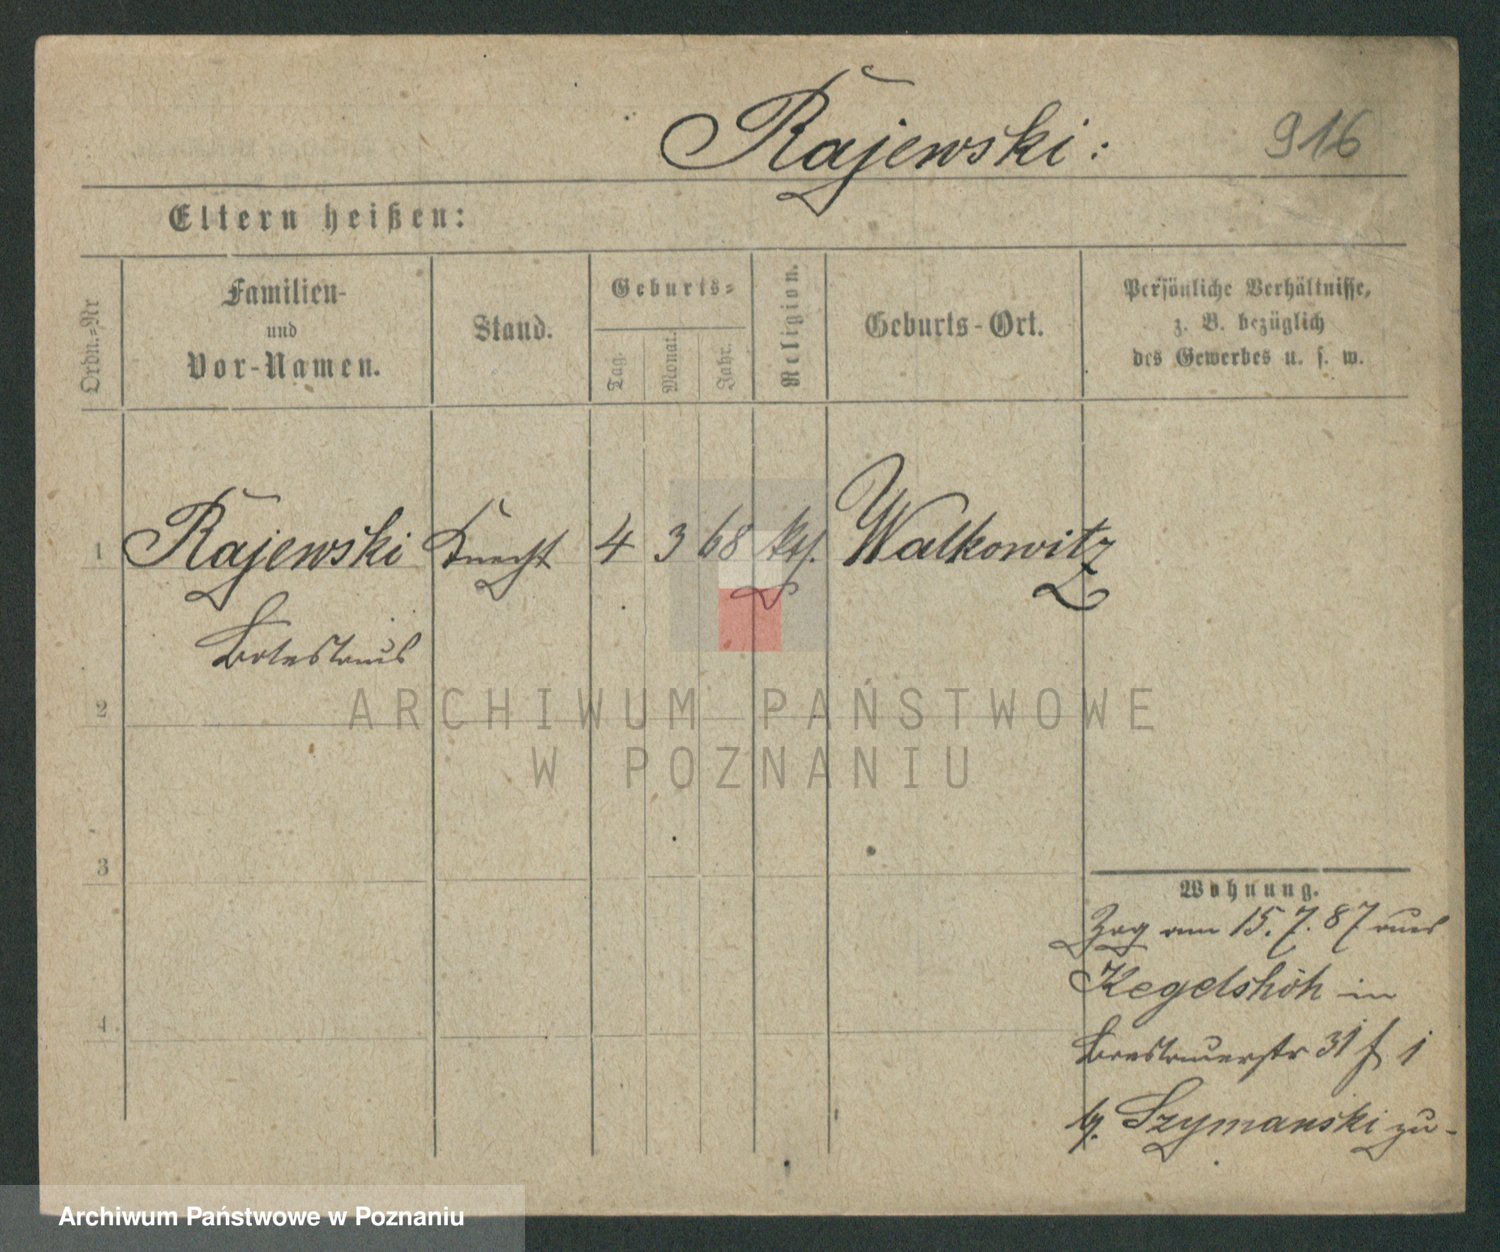 Rajewski:
916
Eltern heißen:
Ordn.-Nr
Familien-
und
Vor-Namen.
Stand.
Geburts-
Tag.
Monat.
Jahr.
Religion.
Geburts-Ort.
Persönliche Verhältnisse,
z. B. bezüglich
des Gewerbes u. s. w.
1 Rajewski Knecht 4 3 68 kth. Walkowitz
Boleslaus
2
3
4
ARCHIWUM PAŃSTWOWE
W POZNANIU
Wohnung.
Zog am 15.7.87 aus
Kegelshöh in
Breslauerstr 31
b. Szymanski zu-
Archiwum Państwowe w Poznaniu